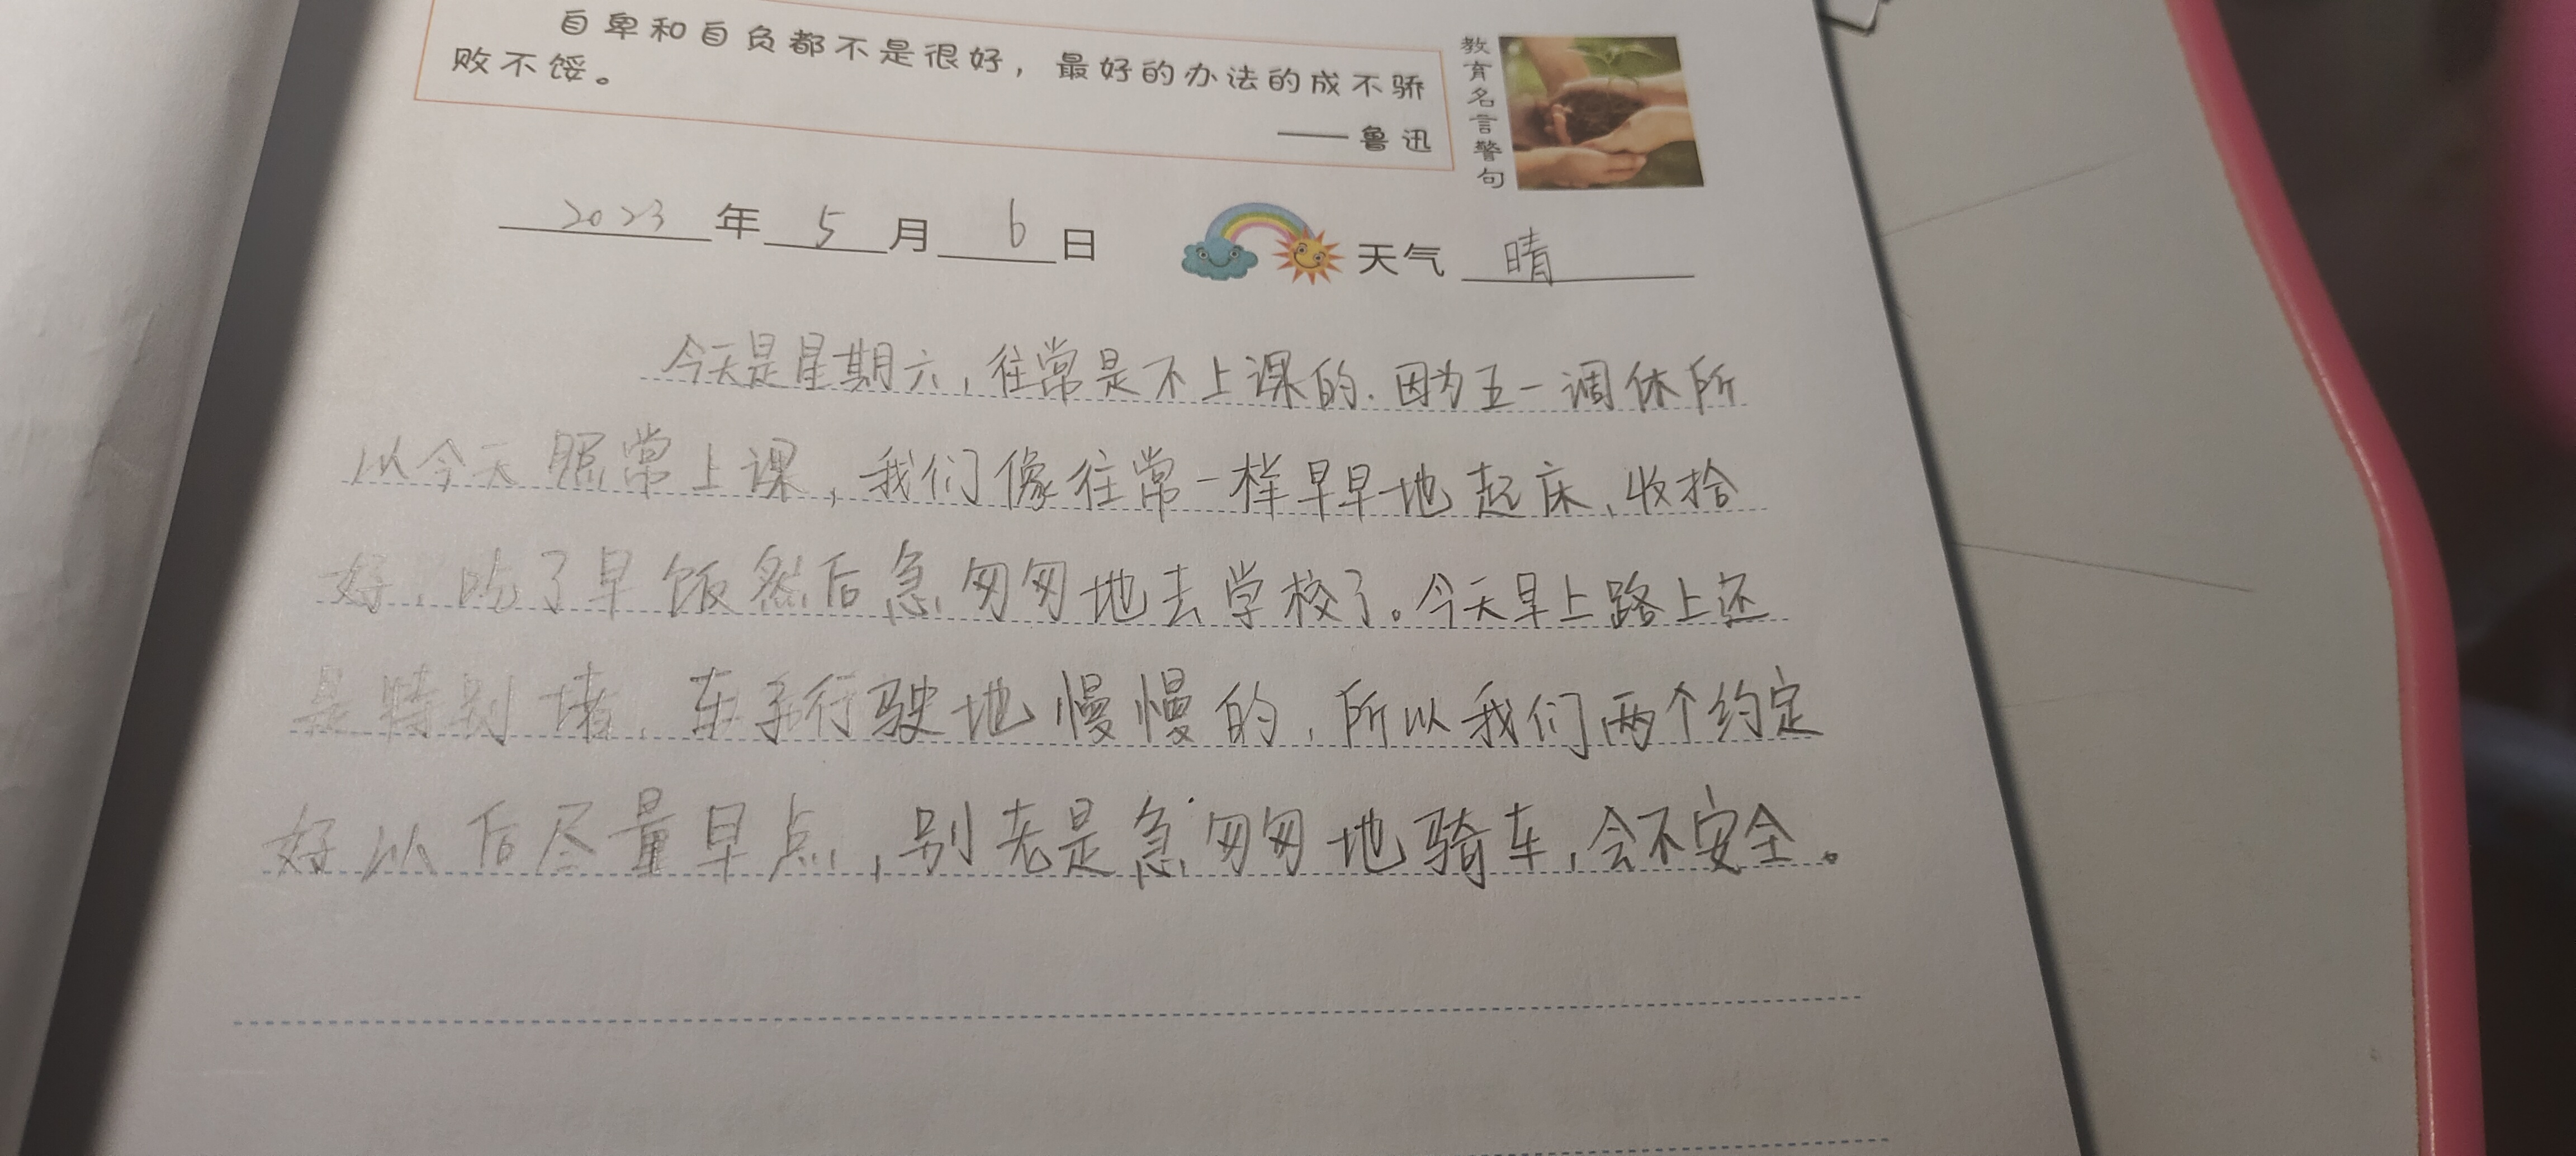 自卑和自负都不是很好，最好的办法的成不骄
败不馁。
——鲁迅
教育名言警句
2023年5月6日 天气 晴
今天是星期六，往常是不上课的.因为五一调休所
以今天照常上课，我们像往常一样早早地起床、收拾
好，吃了早饭然后急匆匆地去学校了。今天早上路上还
是特别堵，车子行驶地慢慢的，所以我们两个约定
好以后尽量早点，别老是急匆匆地骑车，会不安全。